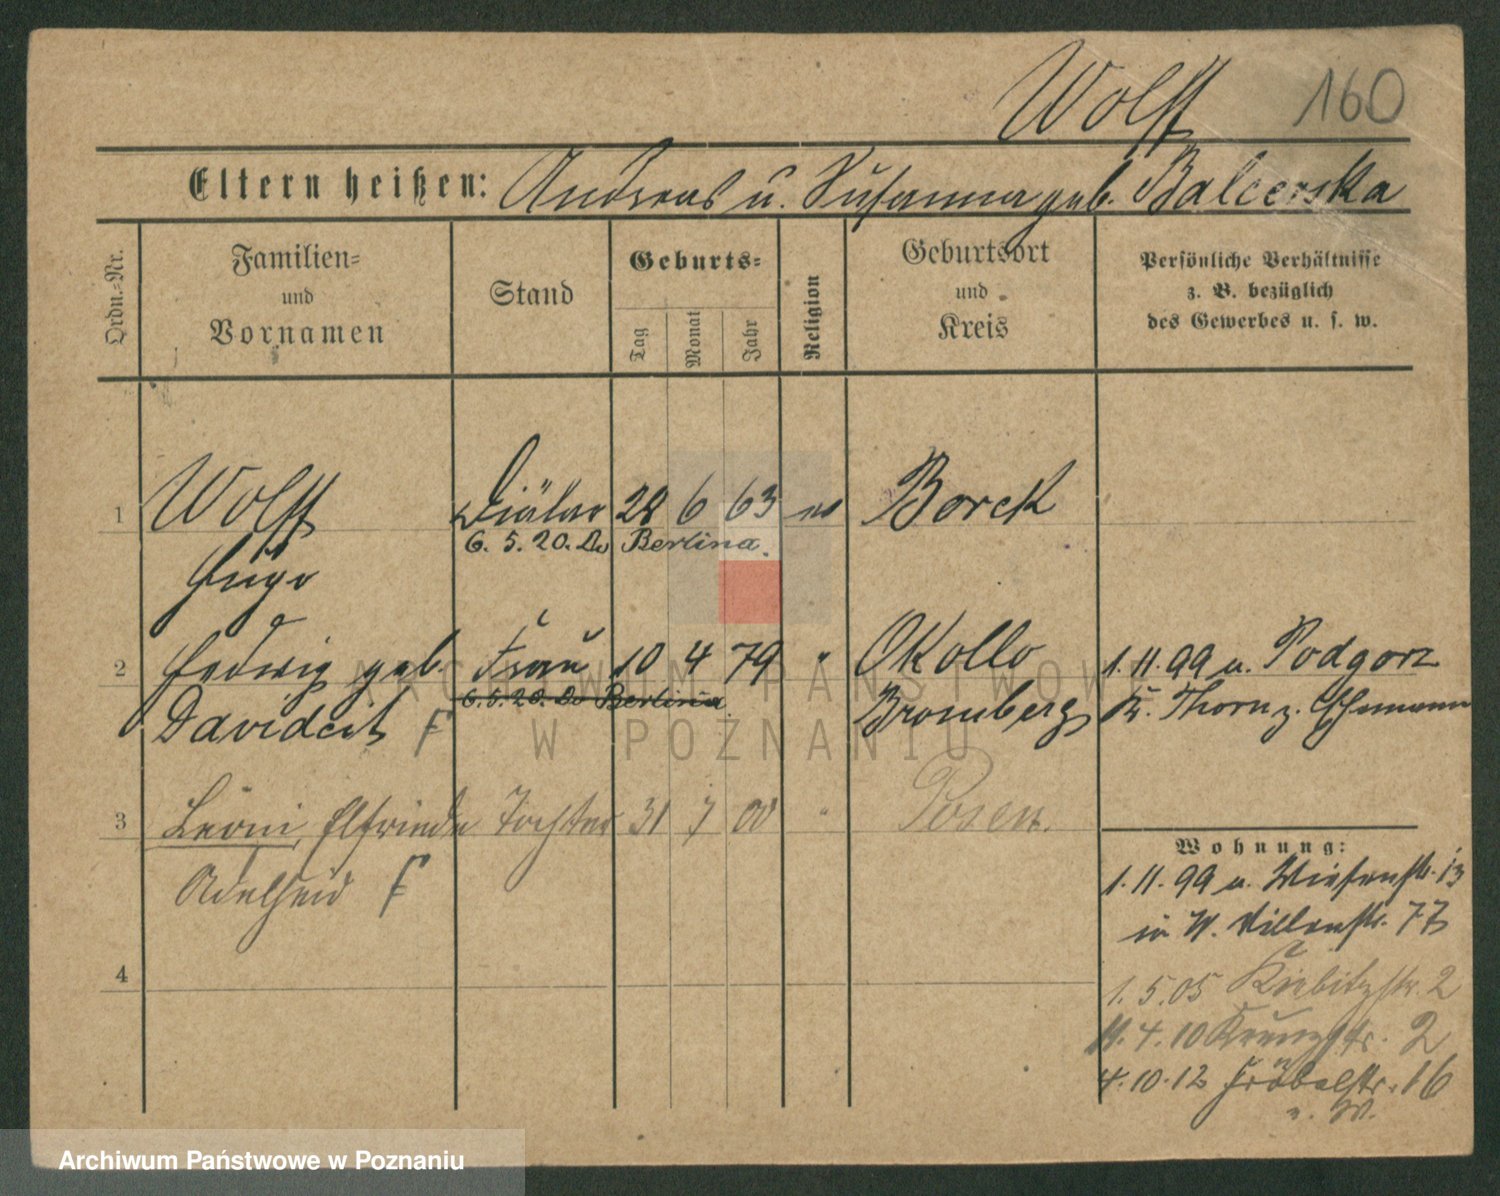 Wolff 160
Eltern heißen: Andreas u. Susanna geb. Balcerska
Ordn.=Nr.
Familien=
und
Vornamen
Stand
Geburts=
Tag
Monat
Jahr
Religion
Geburtsort
und
Kreis
Persönliche Verhältnisse
z. B. bezüglich
des Gewerbes u. s. w.
1 Wolff Diätar 28 6 63 Borek
6. 5. 20. Berlin
Hugo
2 Hedwig geb. Frau 10 4 79 " Okollo 1.11.99 a. Podgorz
6. 5. 20. Berlin
Davideit F Bromberg Kr. Thorn z.
3 Leoni, Elfriede Tochter 31 7 00 " Posen.
Adelheid F
Wohnung:
1.11.99 a. Wiesenstr. 13
in W. Villenstr. 77
4 1.5.05 Kiebitzstr. 2
11.4.10 2
4.10.12 Fröbelstr. 16
ARCHIWUM PAŃSTWOWE
W POZNANIU
Archiwum Państwowe w Poznaniu